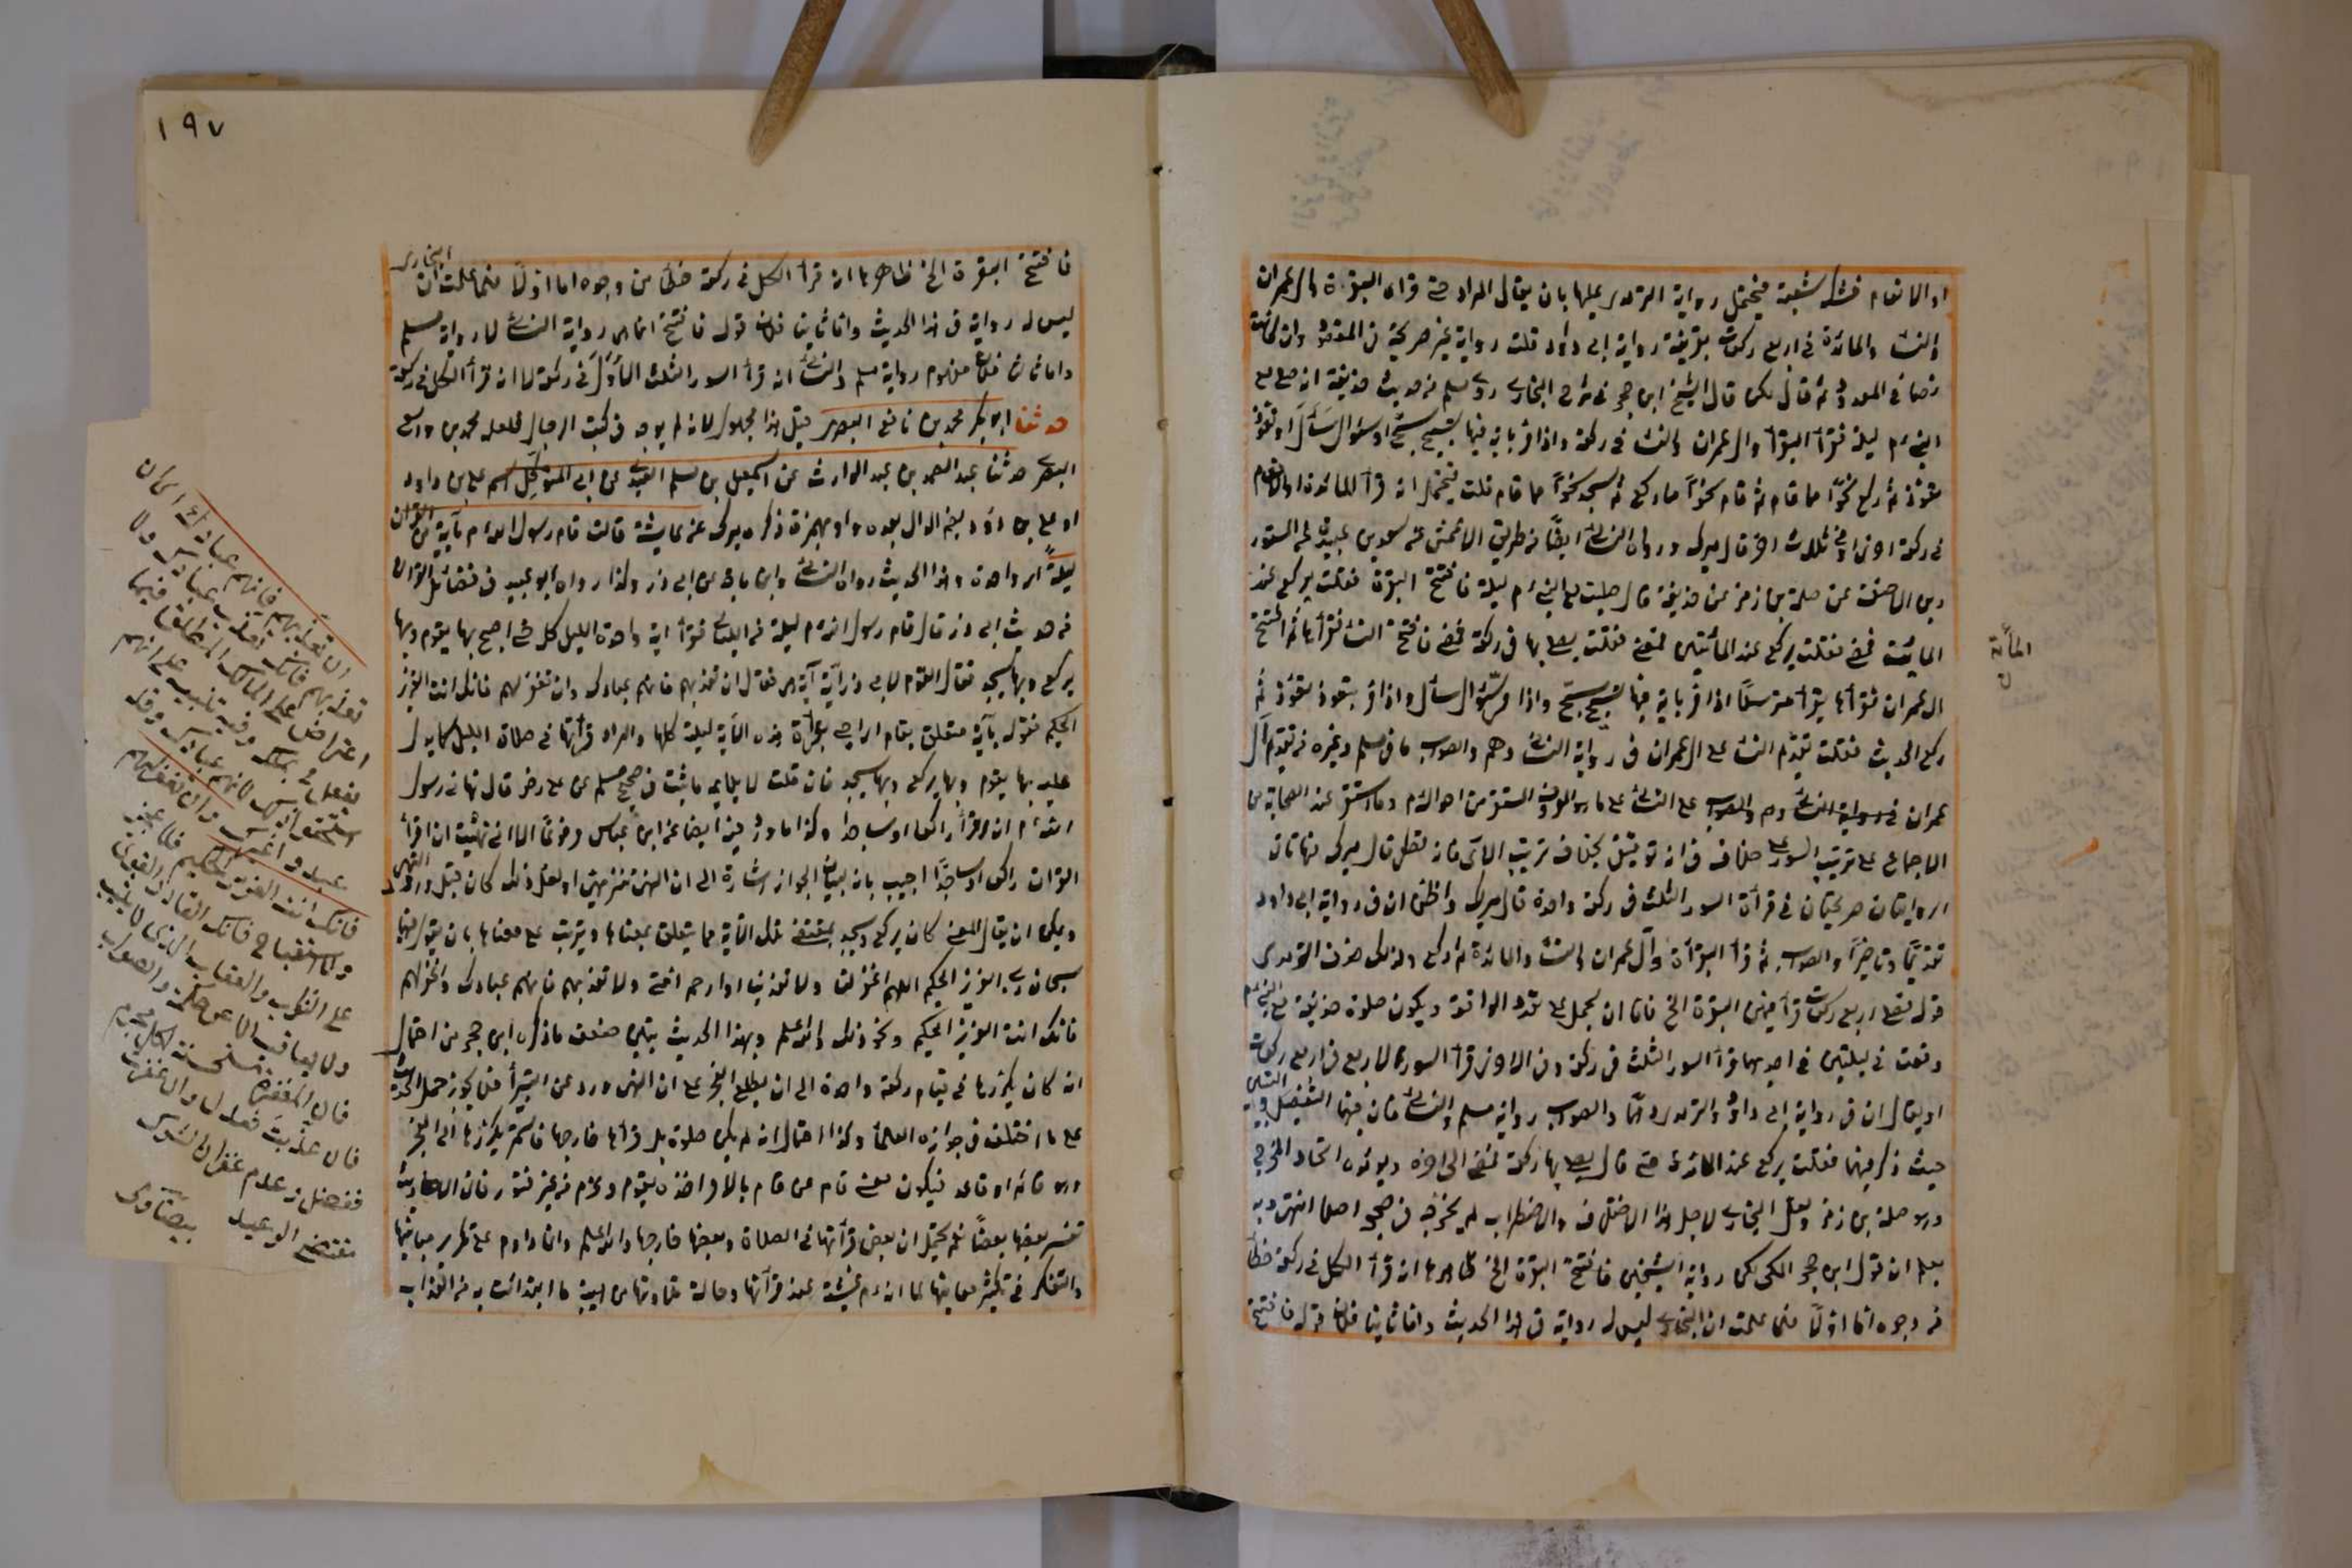 او الانعام شك شعبة فيحتمل رواية الترمذي عليها بان يقال المراد حتى قرأ البقرة وال عمران
والنساء والمائدة في اربع ركعات بقرينة رواية ابي داود قلت رواية غير صريحة في المقصود وان كانت
نصا في المعدود ثم قال لكن قال الشيخ ابن حجر في شرح البخاري روى مسلم من حديث حذيفة انه صلى مع
النبي م ليلة فقرأ البقرة وال عمران والنساء في ركعة واذا مر باية فيها تسبيح سبح او سؤال سأل او تعوذ
تعوذ ثم ركع نحوا مما قام ثم قام نحوا مما ركع ثم سجد نحوا مما قام قلت فيحتمل انه قرأ المائدة او الانعام
في ركعة اخرى او في ثلاث اخر قال ميرك ورواه النسائي ايضا من طريق الاعمش عن سعد بن عبيدة عن المستورد
بن الاحنف عن صلة بن زفر عن حذيفة قال صليت مع النبي م ليلة فافتتح البقرة فقلت يركع عند
المائة فمضى فقلت يركع عند المائتين فمضى فقلت يصلي بها في ركعة فمضى فافتتح النساء فقرأها ثم افتتح
المائة
ال عمران فقرأها يقرأ مترسلا اذا مر باية فيها تسبيح سبح واذا مر بسؤال سأل واذا مر بتعوذ تعوذ ثم
ركع الحديث فقلت تقدم النساء على ال عمران في رواية النسائي وهم والصواب ما في مسلم وغيره من تقديم آل
عمران في رواية النسائي وهم والصواب على النساء على ما هو المعروف المستقر من احواله م وما استقر عند الصحابة من
الاجماع على ترتيب السور على خلاف في انه توقيفي بخلاف ترتيب الآي فانه قطعي قال ميرك فهاتان
الروايتان صريحتان في قرأة السور الثلث في ركعة واحدة قال ميرك واظن ان في رواية ابي داود
تقديما وتاخيرا والصواب ثم قرأ البقرة وآل عمران والنساء والمائدة ثم ركع ولذلك حذف الترمذي
قوله فصلى اربع ركعات قرأ فيهن البقرة الخ فاما ان يحمل على تعدد الواقعة ويكون صلوة حذيفة مع النبي م
وقعت في ليلتين في احديهما قرأ السور الثلث في ركعة وفي الاخرى قرأ السور الاربع في اربع ركعات
او يقال ان في رواية ابي داود والترمذي وهما والصواب رواية مسلم والنسائي فان فيهما التفصيل والتبيين
حيث ذكر فيهما فقلت يركع عند المائة حتى قال يصلي بها ركعة فمضى الى اخره ويؤيده اتحاد المخرج
وهو صلة بن زفر ولعل البخاري لاجل هذا الاختلاف والاضطراب لم يخرجه في صحيحه اصلا انتهى وبه
يعلم ان قول ابن حجر المكي لكن رواية الشيخين فافتتح البقرة الخ ظاهرها انه قرأ الكل في ركعة خطأ
من وجوه اما اولا فلما علمت ان البخاري ليس له رواية في هذا الحديث واما ثانيا فلان قوله فافتتح
١٩٧
فافتتح البقرة الخ ظاهرها انه قرأ الكل في ركعة خطأ من وجوه اما اولا فلما علمت ان البخاري
ليس له رواية في هذا الحديث واما ثانيا فلان قوله فافتتح انما هي رواية النسائي لا رواية مسلم
واما ثالثا فلان مفهوم رواية مسلم والنسائي انه قرأ السور الثلث الأول في ركعة لا انه قرأ الكل في ركعة
حدثنا ابو بكر محمد بن نافع البصري قيل هذا مجهول لانه لم يوجد في كتب الرجال فلعله محمد بن واسع
البصري حدثنا عبد الصمد بن عبد الوارث عن اسمعيل بن مسلم العبدي عن ابي المتوكل اسمه علي بن داود
او علي بن دؤد بضم الدال بعده واو بهمزة ذكره ميرك عن عايشة قالت قام رسول الله م بآية من القرآن
ليلة اي واحدة وهذا الحديث رواه النسائي وابن ماجه عن ابي ذر وكذا رواه ابو عبيد في فضائل القرآن
من حديث ابي ذر قال قام رسول الله م ليلة من الليالي فقرأ اية واحدة الليل كله حتى اصبح بها يقوم وبها
يركع وبها يسجد فقال القوم لابي ذر آية آية هي فقال ان تعذبهم فانهم عبادك وان تغفر لهم فانك انت العزيز
الحكيم فقوله بآية متعلق بقام اي احيى بقرأة هذه الآية ليلة كلها والمراد قرأتها في صلاة الليل كما يدل
عليه بها يقوم وبها يركع وبها يسجد فان قلت لا يلايم ما ثبت في صحيح مسلم عن علي رض قال نهاني رسول
الله م ان اقرأ راكعا او ساجدا وكذا ما ورد فيه ايضا عن ابن عباس مرفوعا الا اني نهيت ان اقرأ
القرآن راكعا او ساجدا اجيب بانه لبيان الجواز اشارة الى ان النهي تنزيهي او لعل ذلك كان قبل ورود النهي
ويمكن ان يقال المعنى كان يركع ويسجد بمقتضى تلك الآية مما يتعلق بمعناها ويترتب على معناها بان يقول فيهما
سبحان ربي العزيز الحكيم اللهم اغفر لنا ولا تعذبنا او ارحم امتي ولا تعذبهم فانهم عبادك واغفر لهم
فانك انت العزيز الحكيم ونحو ذلك والله اعلم وبهذا الحديث يتبين ضعف ما ذكره ابن حجر من احتمال
انه كان يكررها في قيام ركعة واحدة الى ان يطلع الفجر على ان النهي ورد عن البتيرأ فلا يجوز حمل الحديث
على ما اختلف في جوازه العلماء وكذا احتمال انه لم يكن صلوة بل قرأها خارجها فاستمر يكررها الى الفجر
وهو قائم او قاعد فيكون معنى قام من قام بالامر اخذه بقوة وعزم من غير فتور فان الاحاديث
تفسر بعضها بعضا نعم يحتمل ان بعض قرأتها في الصلاة وبعضها خارجها والله اعلم وانما داوم على تكرير مبانيها
والتفكر في تكثير معانيها لما انه م غشيه عند قرأتها وحالة تلاوتها من هيبة ما ابتدئت به من العذاب
ان تعذبهم فانهم عبادك اي ان
تعذبهم فانك تعذب عبادك ولا
اعتراض على المالك المطلق فيما
يفعل في ملكه وفيه تنبيه على انهم
استحقوا ذلك لانهم عبادك وقد
عبدوا غيرك وان تغفر لهم
فانك انت العزيز الحكيم فلا عجز
ولا استقباح فانك القادر القوي
على الثواب والعقاب الذي لا يثيب
ولا يعاقب الا عن حكمة والصواب
فان المغفرة مستحسنة لكل مجرم
فان عذبت فعدل وان غفرت
ففضل وعدم غفران الشرك
مقتضى الوعيد بيضاوي